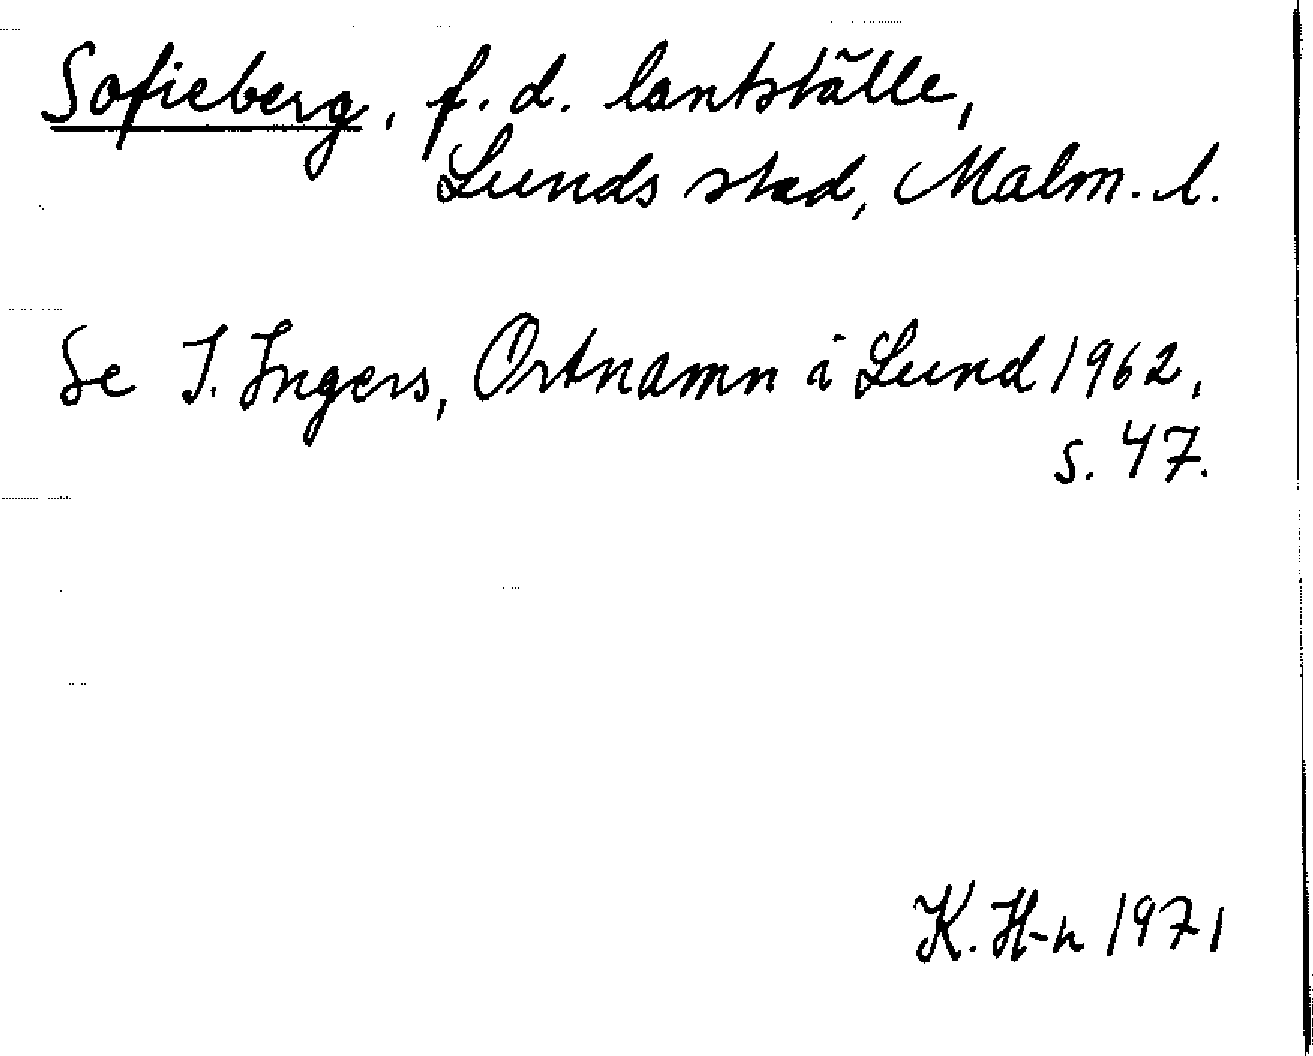 Sofieberg, f. d. lantställe,
Lunds stad, Malm. l.
Se I. Ingers, Ortnamn i Lund 1962,
s. 47.
K. H-n 1971